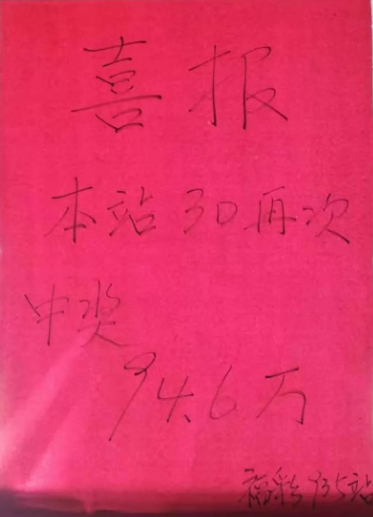 喜报
本站3D再次
中奖
94.6万
福彩935站